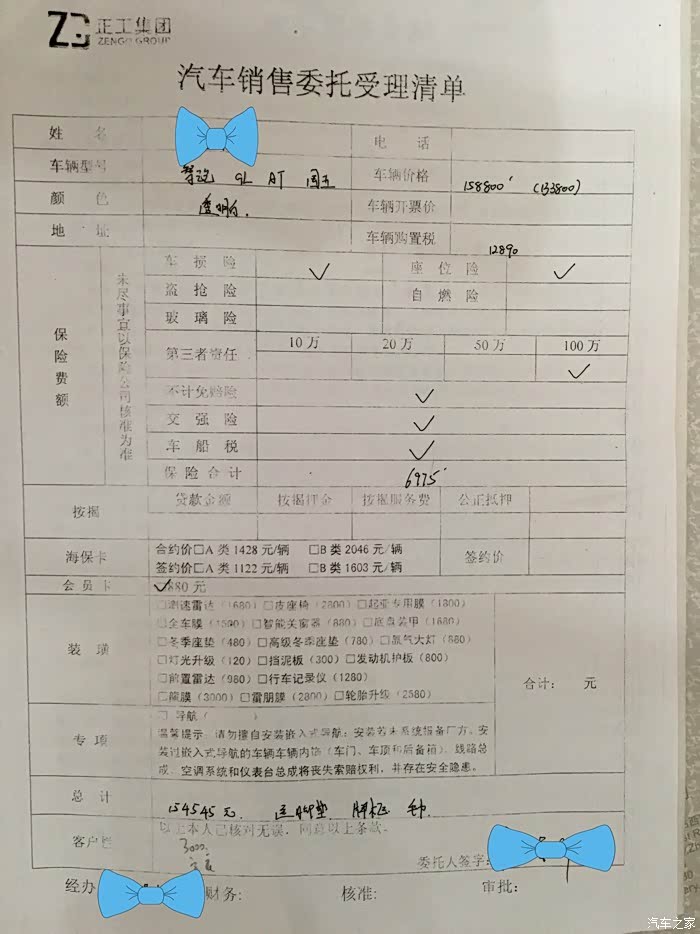 正工集团
ZENGO GROUP
汽车销售委托受理清单
姓 名 电 话
车辆型号 智跑 GL AT 国五 车辆价格 158800 (133800)
颜 色 透明白. 车辆开票价
地 址 车辆购置税 12890
保险费额
未尽事宜以保险公司核准为准
车 损 险 ✓ 座 位 险 ✓
盗 抢 险 自 燃 险
玻 璃 险
第三者责任 10万 20万 50万 100万
✓
不计免赔险 ✓
交 强 险 ✓
车 船 税 ✓
保 险 合 计 6975
按揭 贷款金额 按揭押金 按揭服务费 公正抵押
海保卡 合约价□A 类 1428 元/辆 □B 类 2046 元/辆 签约价
签约价□A 类 1122 元/辆 □B 类 1603 元/辆
会 员 卡 ✓880 元
装 璜
□测速雷达(1680)□皮座椅(2800)□起亚专用膜(1800)
□全车膜(1580)□智能关窗器(680)□底盘装甲(1680)
□冬季座垫(480)□高级冬季座垫(780)□氙气大灯(880)
□灯光升级(120)□挡泥板(300)□发动机护板(800)
□前置雷达(980)□行车记录仪(1280)
□龍膜(3000)□雷朋膜(2800)□轮胎升级(2580)
合计: 元
专 项 □ 导航( )
温馨提示:请勿擅自安装嵌入式导航;安装若未系统报备厂方,安
装过嵌入式导航的车辆车辆内饰(车门、车顶和后备箱)、线路总
成、空调系统和仪表台总成将丧失索赔权利,并存在安全隐患。
总 计 154545元. 送脚垫 牌框
以上本人已核对无误,同意以上条款。
客户
3000
委托人签字:
经办 财务: 核准: 审批:
汽车之家